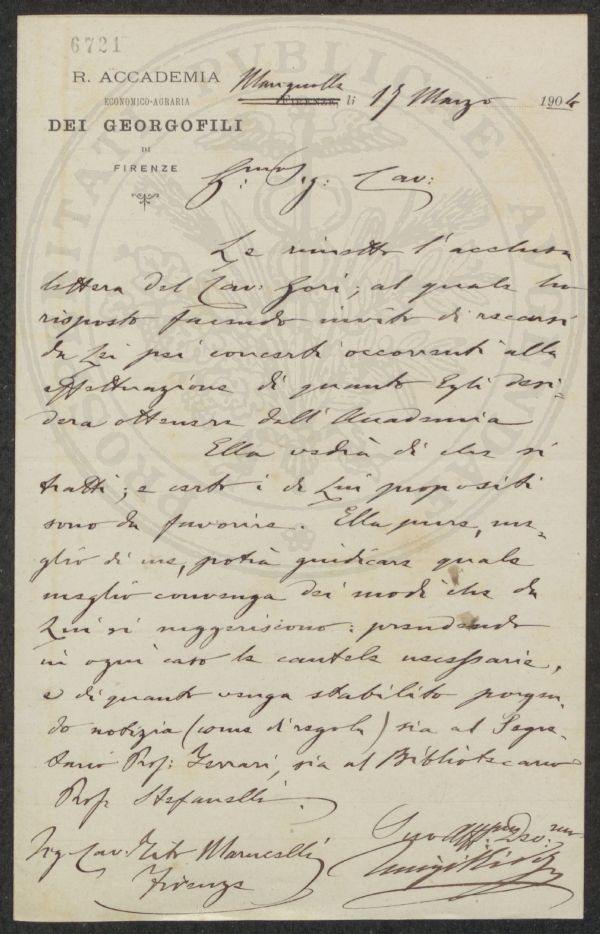 6721
R. ACCADEMIA
ECONOMICO-AGRARIA
DEI GEORGOFILI
DI
FIRENZE
FIRENZE, li 17 Marzo 1904
Sig: Cav:
Le rimetto l'acclusa
lettera del Cav: Gori; al quale ho
risposto facendo invito di recarsi
da Lei pei concerti occorrenti alla
effettuazione di quanto Egli desi=
dera ottenere dall'Accademia
Ella vedrà di che si
tratti; e certo i di Lui propositi
sono da favorire. Ella pure, me=
glio di me, potrà giudicare quale
meglio convenga dei modi che da
Lui si suggeriscono: prendendo
in ogni caso le cautele necessarie,
e di quanto venga stabilito porgen=
do notizia (come di regola) sia al Segre=
tario Prof: Ferrari, sia al Bibliotecario
Prof: Stefanelli.
Suo Aff:mo Dev:mo
Ing. Cav: Marucelli
Firenze
PUBLICAE